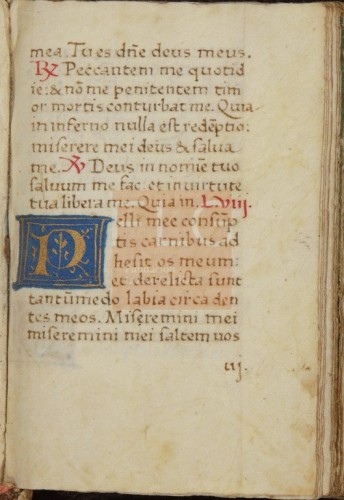 mea. Tu es dñe deus meus.
℟ Peccantem me quotid
ie: & nõ me penitentem tim
or mortis conturbat me. Quia
in inferno nulla est redẽptio:
miserere mei deus & salua
me. ℣ Deus in nomĩe tuo
saluum me fac, et in uirtute
tua libera me. Quia in. L.viij.
Pelli mee consũp
tis carnibus ad
hesit os meum:
et derelicta sunt
tantũmẽdo labia circa den
tes meos. Miseremini mei
miseremini mei saltem uos
iij.